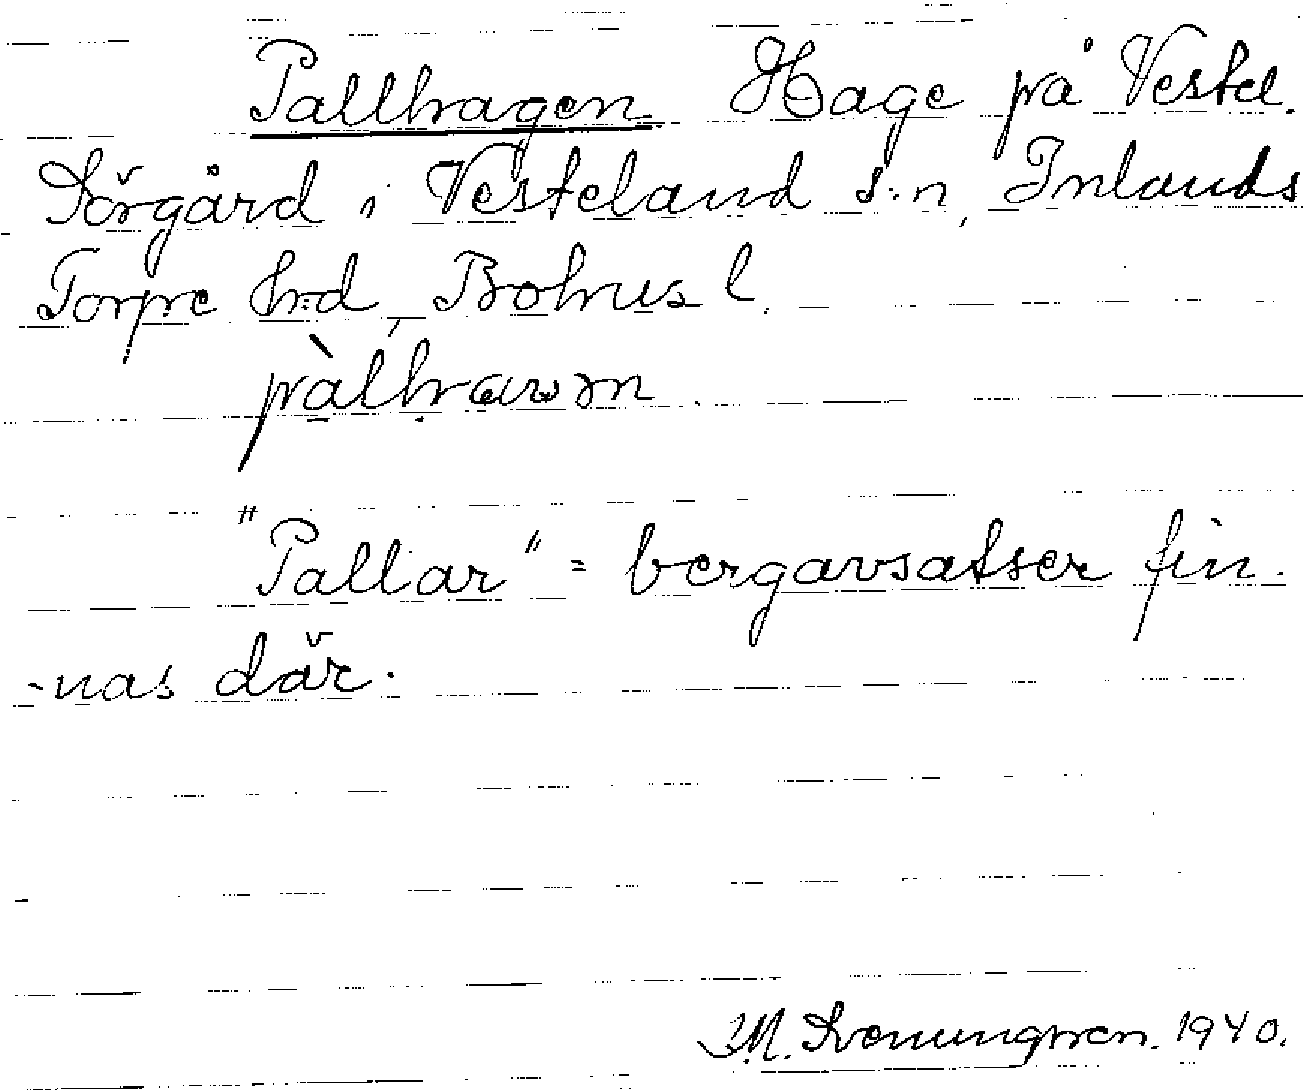 Pallhagen. Hage på Vestel.
Sörgård i Vesteland s:n, Inlands
Torpe h:d, Bohus l.
"Pallar" = bergavsatser fin-
-nas där.
M. 1940.